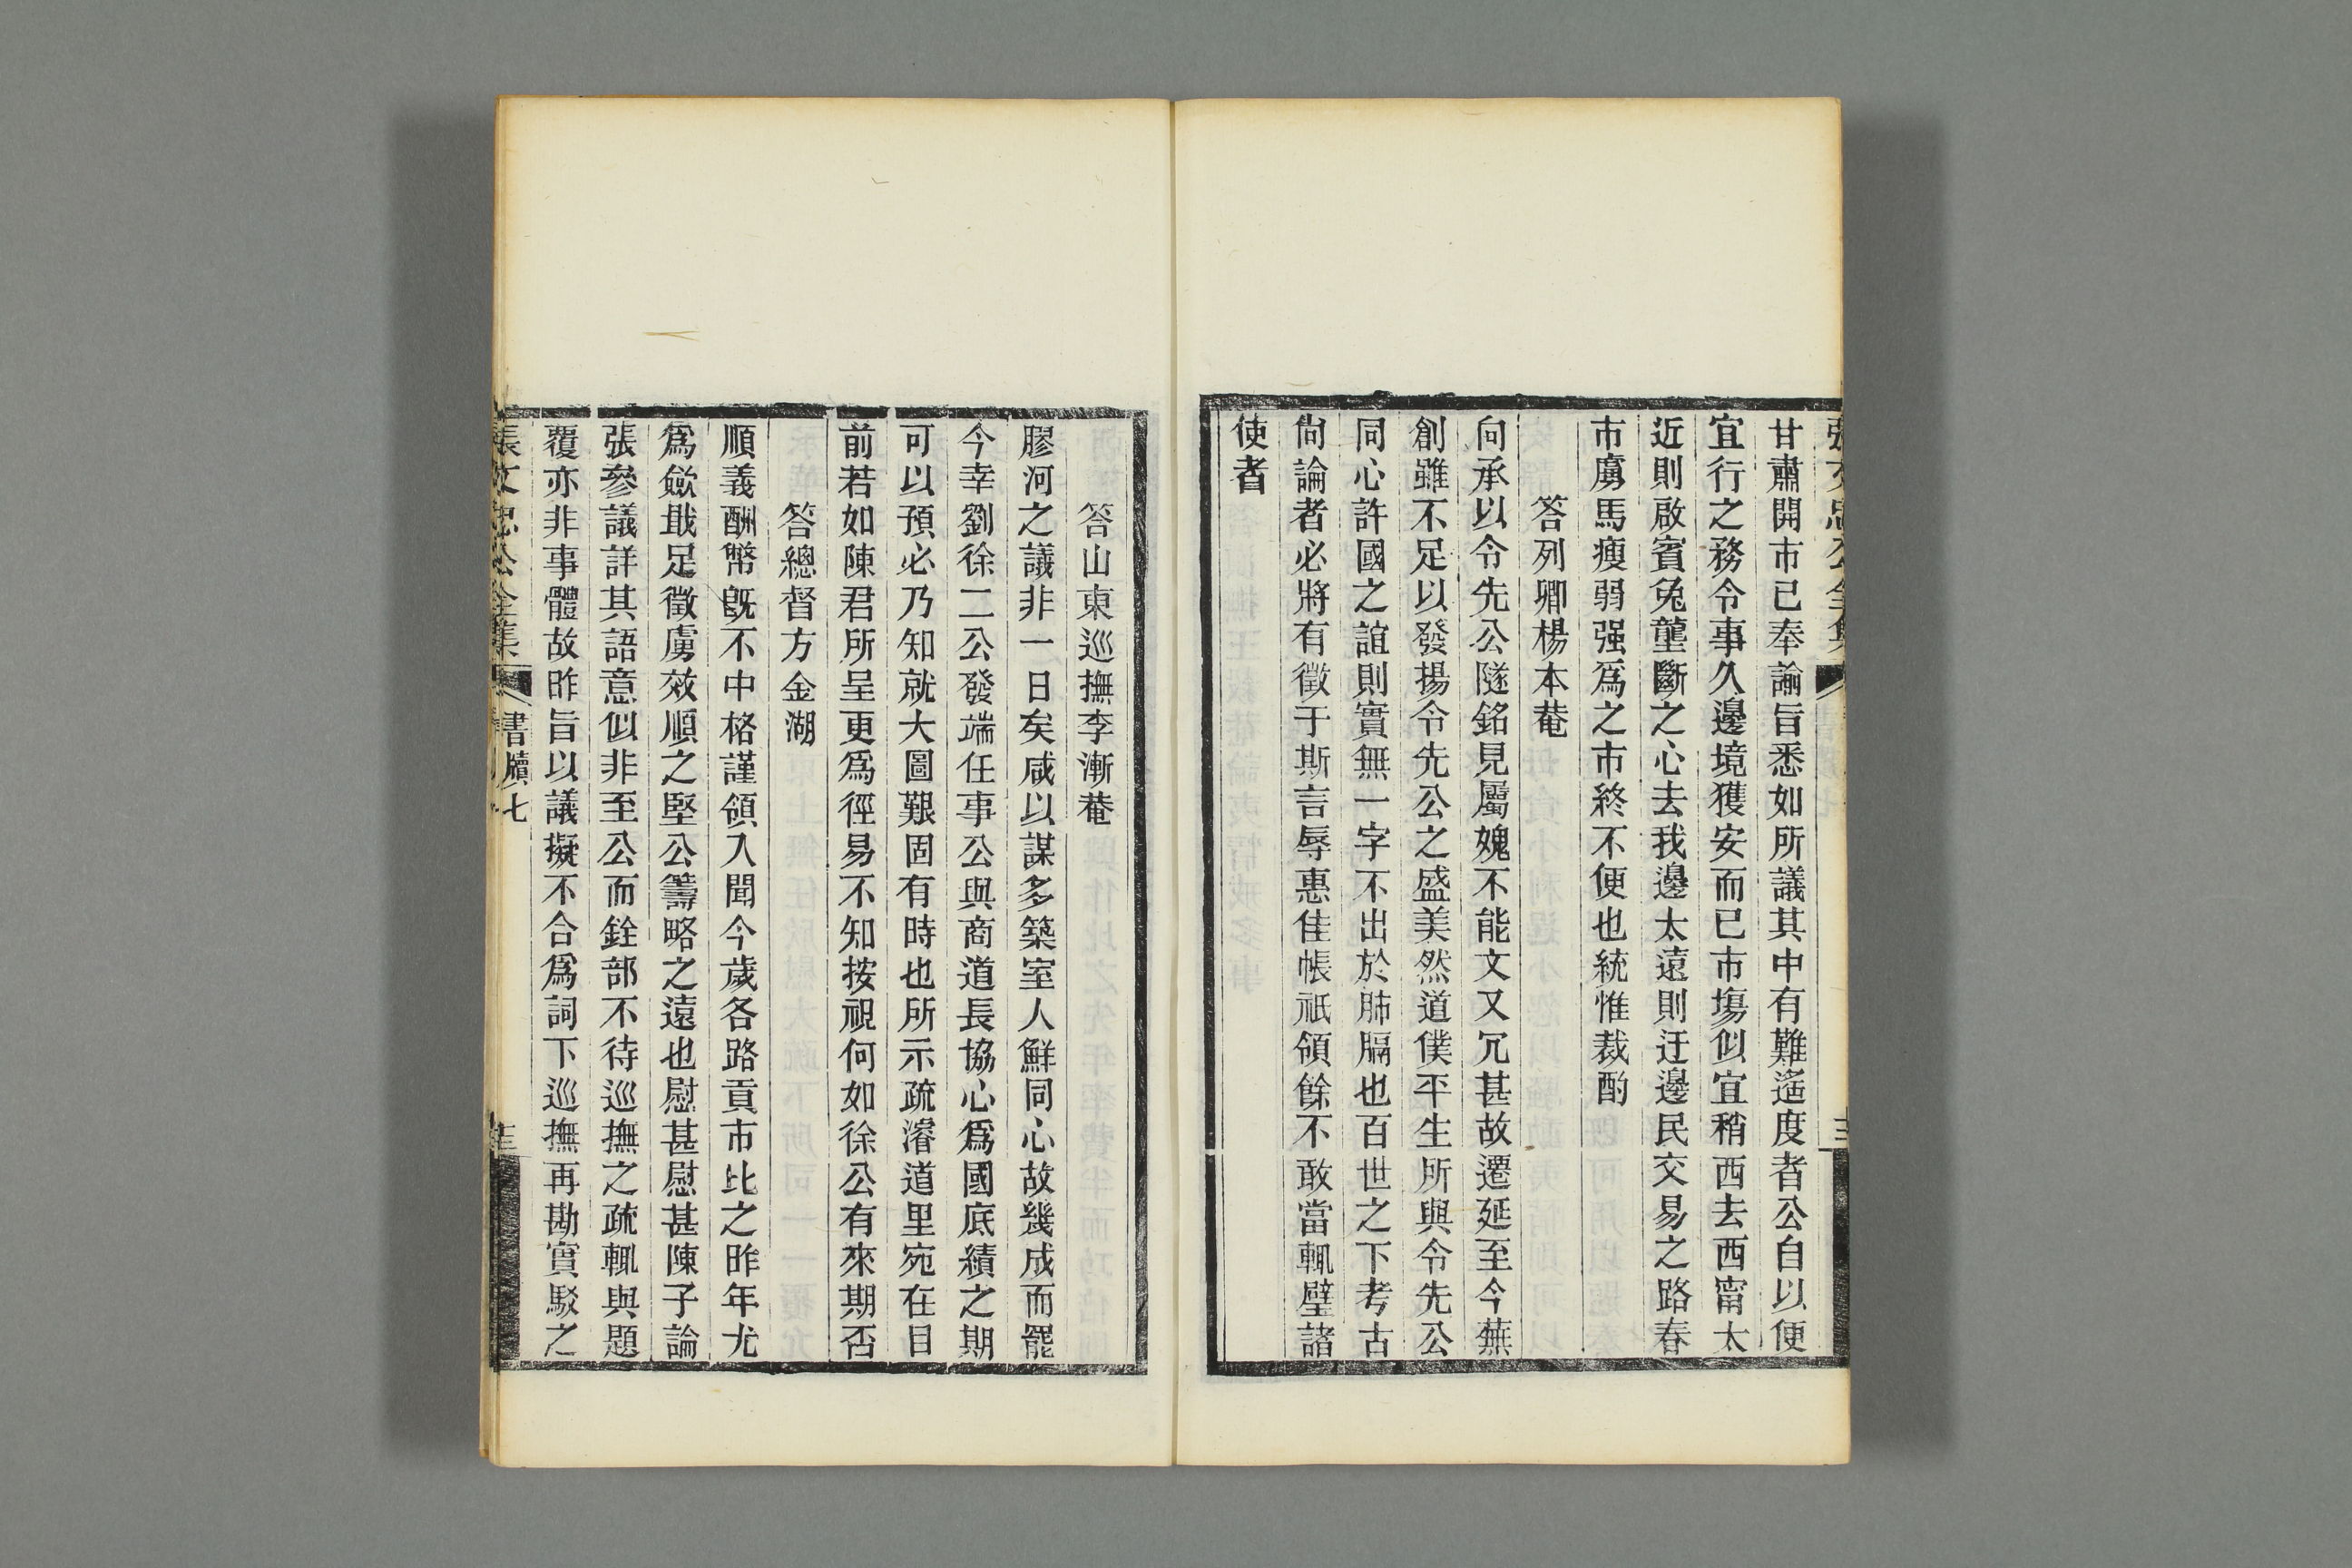 甘肅開市已奉諭旨悉如所議其中有難遙度者公自以便
宜行之務令事久邊境獲安而已市塲似宜稍西去西甯太
近則啟賓兔蘢斷之心去我邊太遠則迂邊民交易之路春
市虜馬瘦弱强爲之市終不便也統惟裁酌
答列卿楊本菴
向承以令先公隧銘見屬媿不能文又冗甚故遷延至今蕪
創雖不足以發揚令先公之盛美然道僕平生所與令先公
同心許國之誼則實無一字不出於肺膈也百世之下考古
尙論者必將有徵于斯言辱惠佳帳祇領餘不敢當輒璧諸
使者
答山東巡撫李漸菴
膠河之議非一日矣咸以謀多築室人鮮同心故幾成而罷
今幸劉徐二公發端任事公與商道長協心爲國底績之期
可以預必乃知就大圖艱固有時也所示疏濬道里宛在目
前若如陳君所呈更爲徑易不知按視何如徐公有來期否
答總督方金湖
順義酬幣旣不中格謹領入聞今歲各路貢市比之昨年尤
爲歛戢足徵虜效順之堅公籌略之遠也慰甚慰甚陳子論
張參議詳其語意似非至公而銓部不待巡撫之疏輒與題
覆亦非事體故昨旨以議擬不合爲詞下巡撫再勘實駁之
張文忠公全集
書牘七